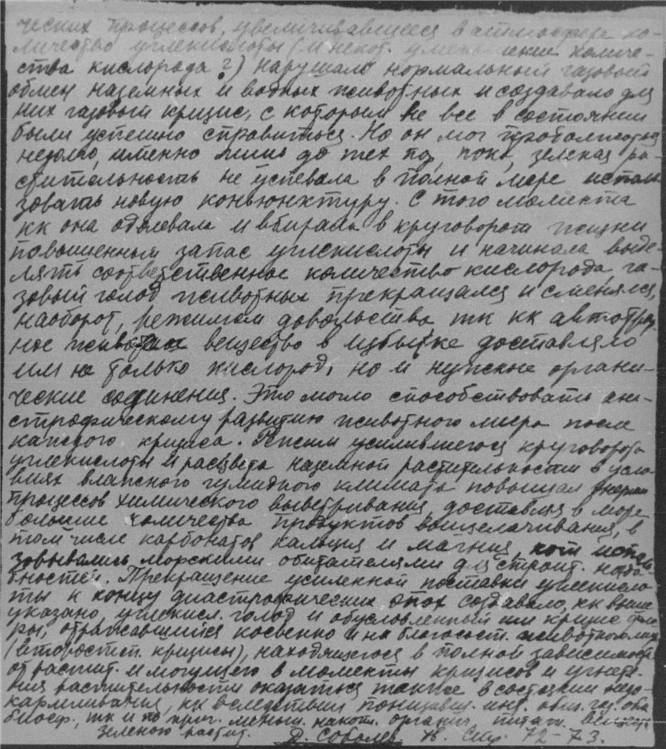 ческих процессов, увеличивавшееся в атмосфере ко-
личество углекислоты (и некот. уменьшение количе-
ства кислорода?) нарушало нормальный газовый
обмен наземных и водных животных и создавало для
них газовый кризис, с которым не все в состоянии
были успешно справиться. Но он мог продолжаться
недолго, именно лишь до тех пор, пока зеленая ра-
стительность не успевала в полной мере исполь-
зовать новую конъюнктуру. С того момента
кк она одолевала и вбирала в круговорот жизни
повышенный запас углекислоты и начинала выде-
лять соответственное количество кислорода, га-
зовый голод животных прекращался и сменялся,
наоборот, режимом довольства тк кк автотроф
ное вещество в избытке доставляло
им не только кислород, но и нужные органи-
ческие соединения. Это могло способствовать ана-
строфическому развитию животного мира после
кризиса. Режим усилившегося круговорота
углекислоты и расцвета наземной растительности в усло-
виях влажного гумидного климата повышал энергию
процессов химического выветривания, доставляя в море
большие количества продуктов выщелачивания, в
том числе карбонатов кальция и магния, кот исполь
зовывались морскими обитателями для строит. надо
бностей. Прекращение усиленной поставки углекисло
ты к концу диастрофических эпох создавало, кк выше
указано, углекисл. голод и обусловленный им кризис фло
ры, отражавшийся косвенно и на благосост. животного мира
(второстеп. кризисы), находящегося в полной зависимости
от растит. и могущего в моменты кризисов и угнете-
ния растительности оказаться также в состоянии недо-
кармливания, кк вследствие понизивш. инт. общ. газ. обм
биосф, тк и по прич. меньш. накопл. органич. питат.
зеленого растит. Д. Соболев Н. Стр. 72-73.